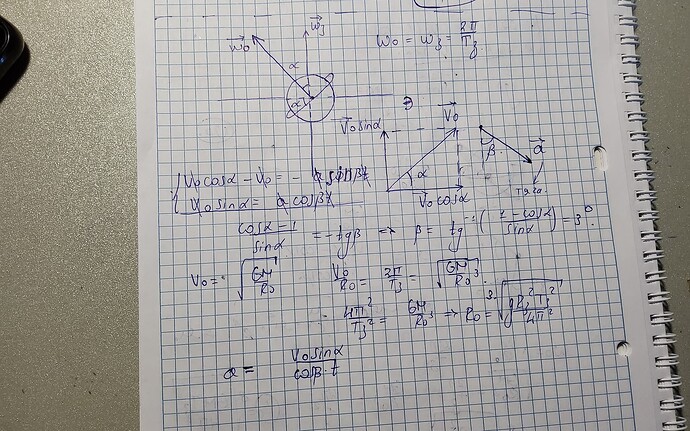 w⃗₀ w⃗₃ w₀ = w₃ = 2π/T₃
α
α
V⃗₀ sinα V⃗₀
β a⃗
α тяга
V⃗₀ cosα
V₀ cosα - V₀ = - a sinβt
V₀ sinα = a cosβt
(cosα - 1)/sinα = - tgβ => β = tg⁻¹((1 - cosα)/sinα) = 3°.
V₀ = √(GM/R₀) V₀/R₀ = 2π/T₃ = √(GM/R₀³)
4π²/T₃² = GM/R₀³ => R₀ = ³√(gR₃²T₃²/4π²)
a = V₀ sinα/(cosβ · t)